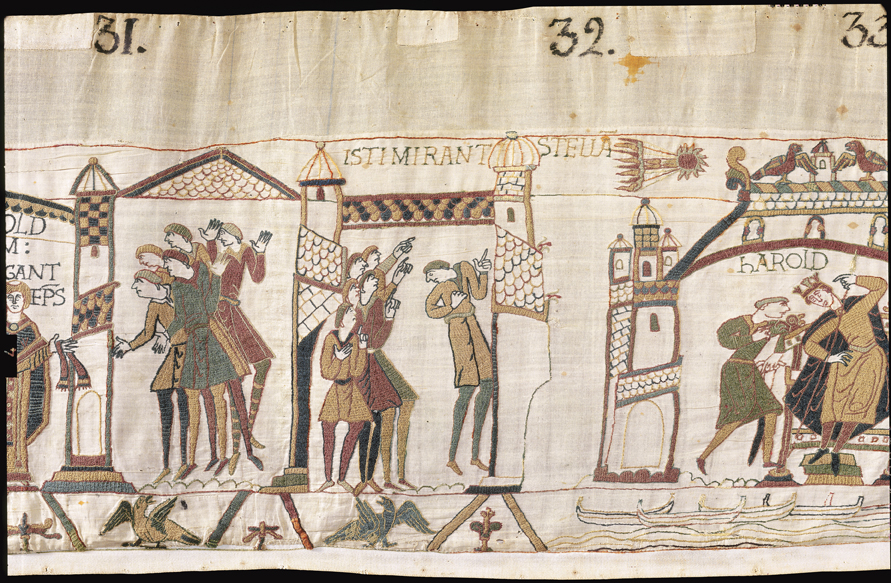 31.
32.
33
OLD
M:
GANT
EPS
ISTI MIRANT STELLA
HAROLD